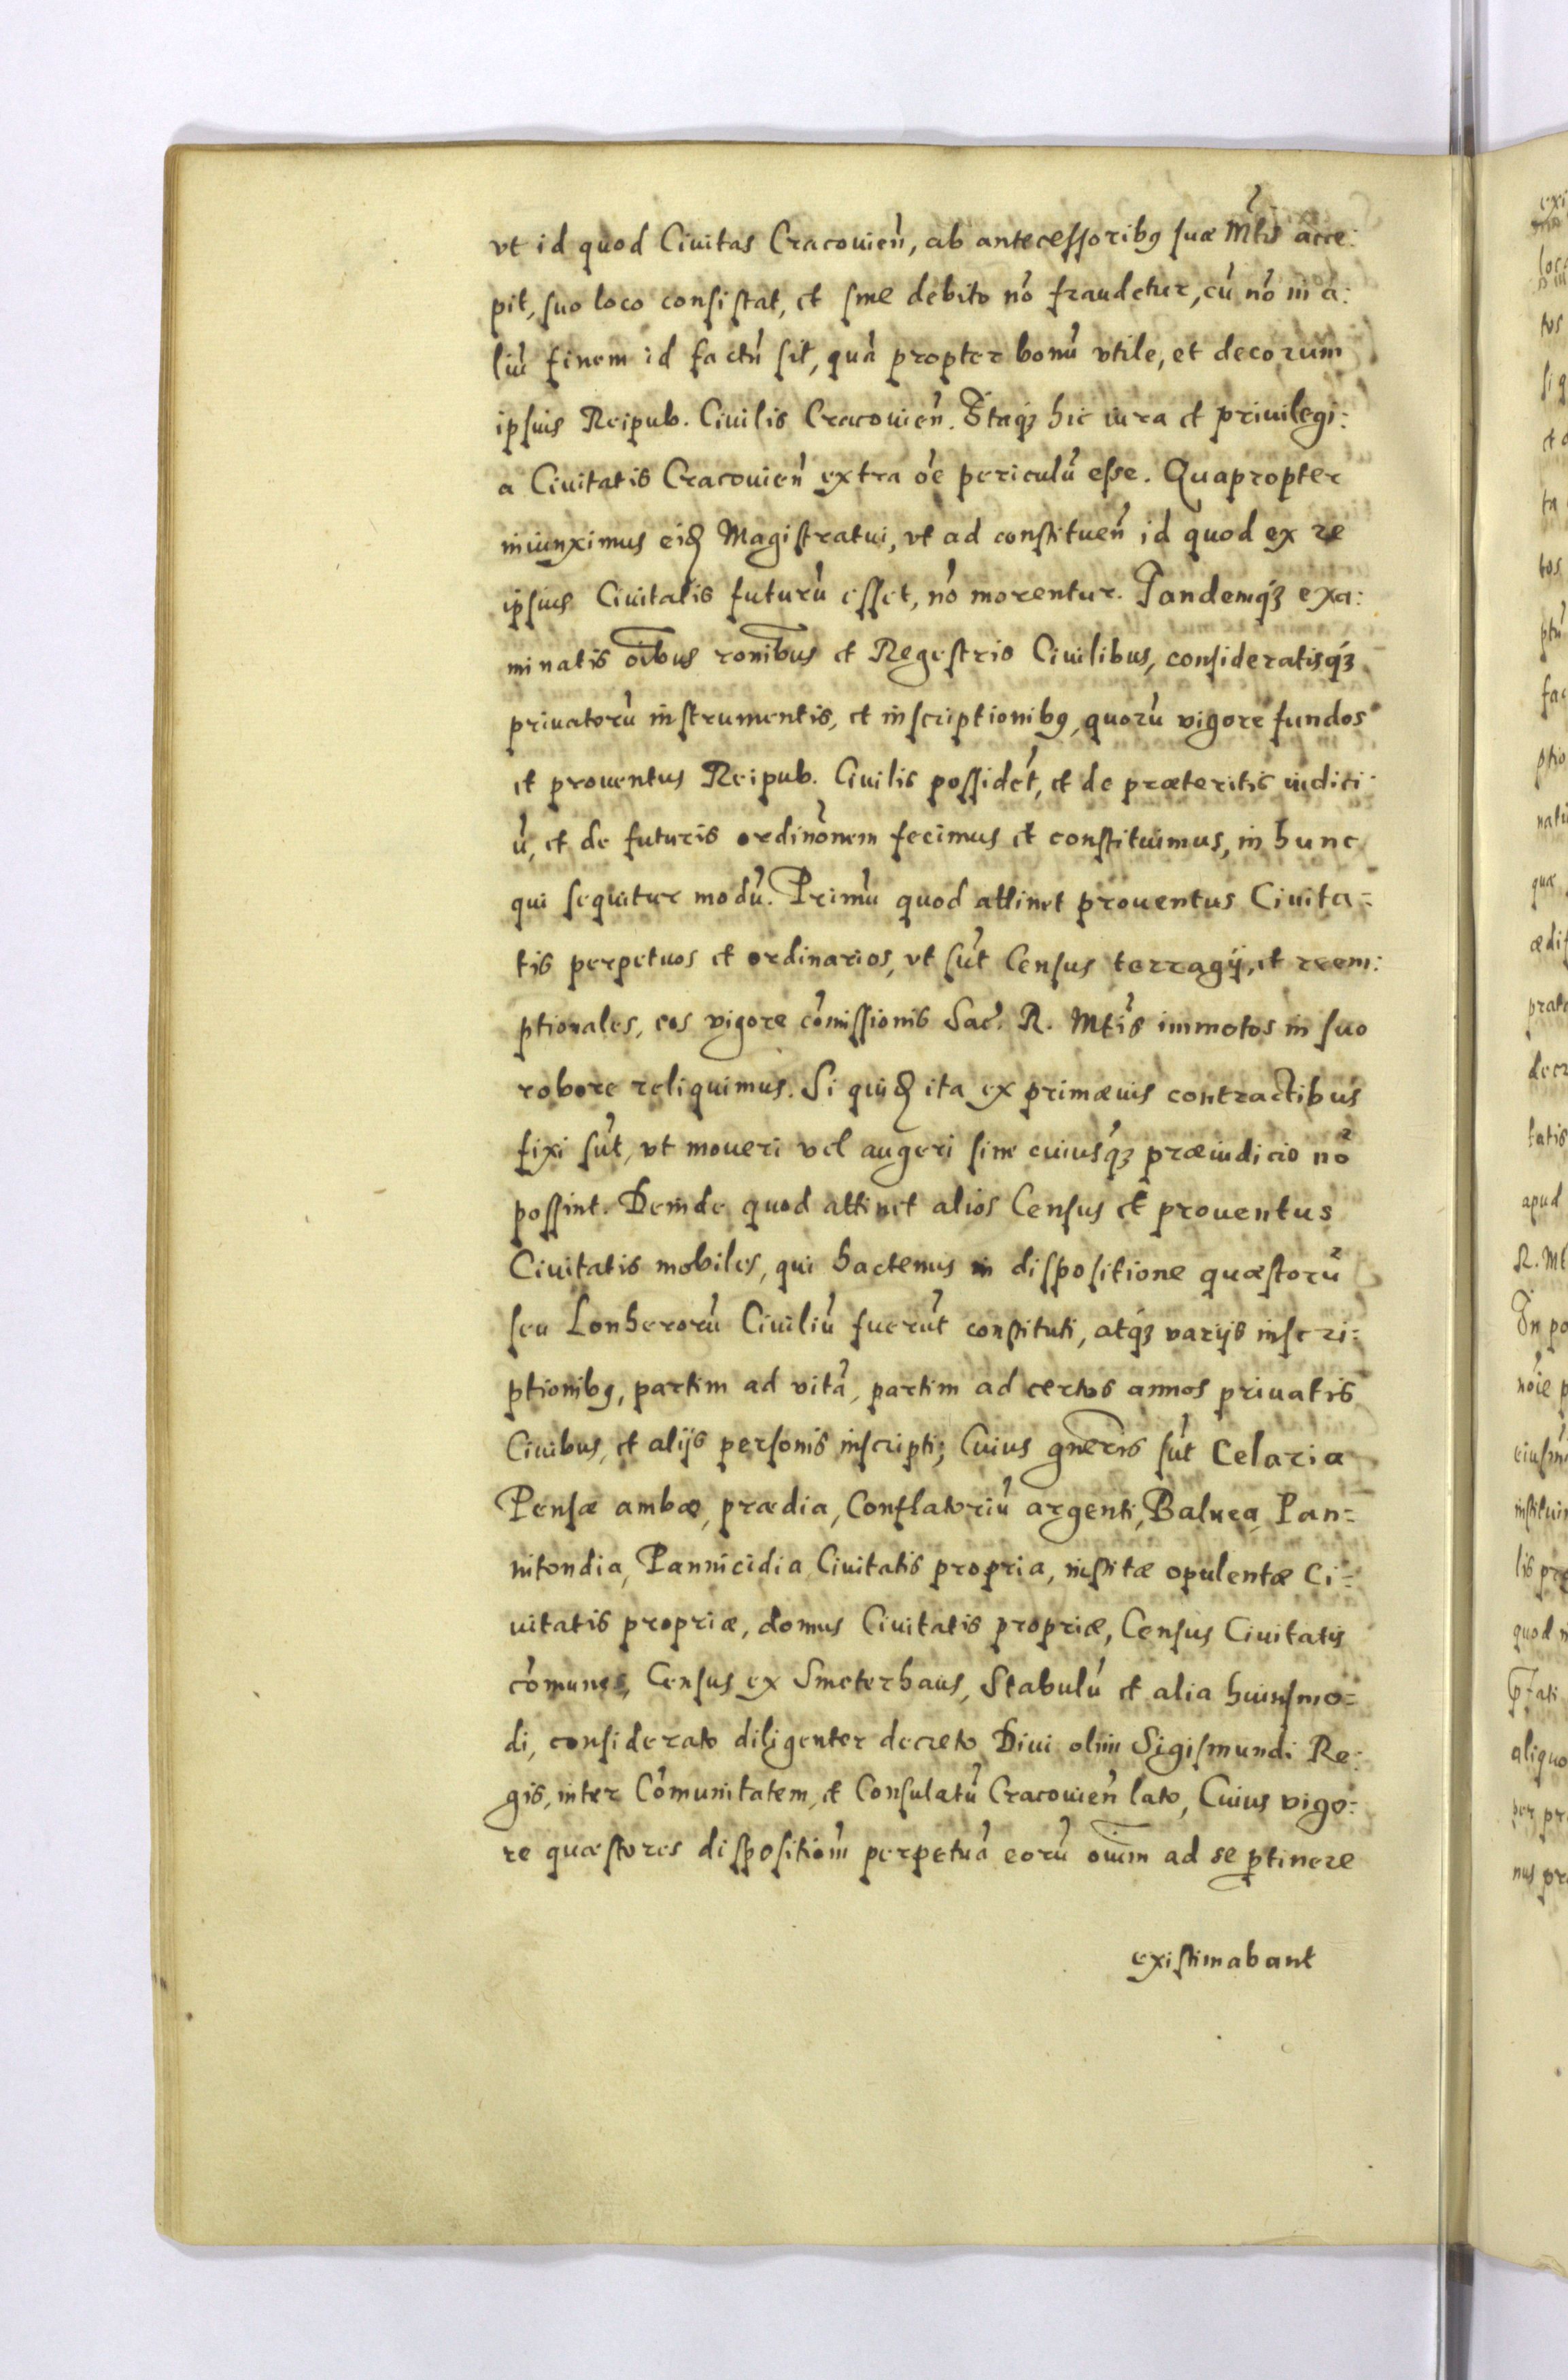 vt id quod Ciuitas Cracouień, ab antecessoribꝯ suæ Mt̃is acce:
pit, suo loco consistat, et fine debito nõ fraudetur, cũ nõ in a:
liũ finem id factũ sit, quã propter bonũ vtile, et decorum
ipsius Reipub. Ciuilis Cracouień. Itaqꝫ hic iura et priuilegi:
a Ciuitatis Cracouień extra õe periculũ esse. Quapropter
iniunximus eiđ Magistratui, vt ad constitueń id quod ex re
ipsius Ciuitatis futurũ esset, nõ morentur. Tandemqꝫ exa:
minatis oĩbus rõnibus et Regestris Ciuilibus, consideratisqꝫ
priuatorũ instrumentis, et inscriptionibꝯ, quorũ vigore fundos
et prouentus Reipub. Ciuilis possidẽt, et de præteritis iudici:
ũ, et de futuris ordinõnem fecimus et constituimus, in hunc
qui sequitur modũ. Primũ quod attinet prouentus Ciuita=
tis perpetuos et ordinarios, vt sũt Census terragij, et reem:
ptionales, eos vigore cõmissionis Sac̃. R. Mt̃is immotos in suo
robore reliquimus. Si quiđ ita ex primæuis contractibus
fixi sũt, vt moueri vel augeri sine cuiusqꝫ præiudicio nõ
possint. Deinde quod attinet alios Census et prouentus
Ciuitatis mobiles, qui hactenus in dispositione quæstorũ
seu Lonherorũ Ciuiliũ fuerũt constituti, atqꝫ varijs inscri:
ptionibꝯ, partim ad vitã, partim ad certos annos priuatis
Ciuibus, et alijs personis inscripti; Cuius gñeris sũt Celaria
Pensæ ambæ, prædia, Conflatoriũ argenti, Balnea, Pan=
nitondia, Pannicidia Ciuitatis propria, institæ opulentæ Ci=
uitatis propriæ, domus Ciuitatis propriæ, Census Ciuitatis
cõmunes, Census ex Smeterhaus, Stabulũ et alia huiusmo=
di, considerato diligenter decreto Diui olim Sigismundi Re:
gis, inter Cõmunitatem, et Consulatũ Cracouień lato, Cuius vigo:
re quæstores dispositiom̃ perpetuã eorũ oĩum ad se ꝑtinere
existimabant